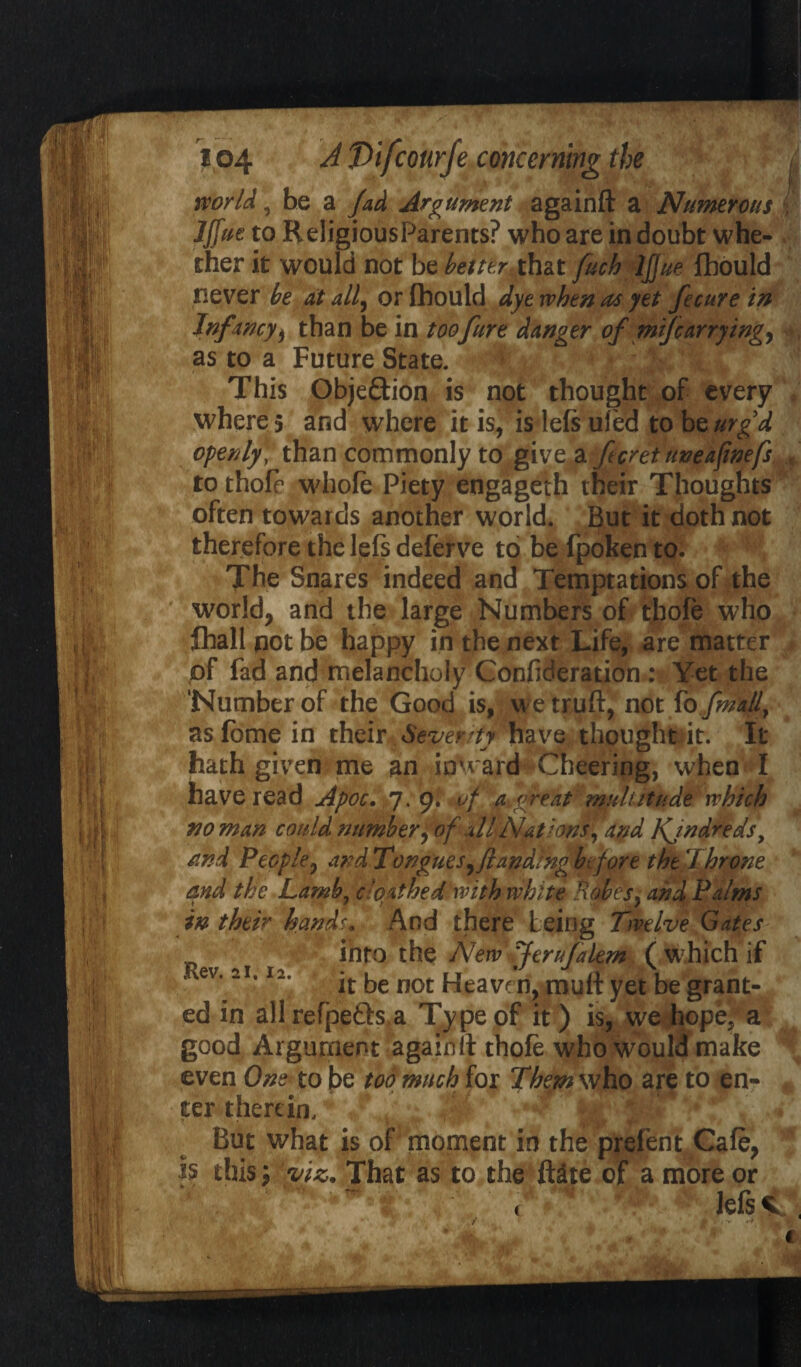 104 A Diſcourſe concerning the
world, be a ſad Argument againſt a Numerous
Iſſue to ReligiousParents? who are in doubt whe-
ther it would not be better that ſuch Iſſue ſhould
never be at all, or ſhould dye when as yet ſecure in
Infancy, than be in too ſure danger of miſcarrying,
as to a Future State.
This Objection is not thought of every
where; and where it is, is leſs uſed to be urg'd
openly, than commonly to give a ſecret uneaſineſs
to thoſe whoſe Piety engageth their Thoughts
often towards another world. But it doth not
therefore the leſs deſerve to be ſpoken to.
The Snares indeed and Temptations of the
world, and the large Numbers of thoſe who
ſhall not be happy in the next Life, are matter
of ſad and melancholy Conſideration: Yet the
Number of the Good is, we truſt, not ſo ſmall,
as ſome in their Severity have thought it. It
hath given me an inward Cheering, when I
have read Apoc. 7. 9. of a great multitude which
no man could number, of all Nations, and Kindreds,
and People, and Tongues, ſtanding before the Throne
and the Lamb, cloathed with white Robes, and Palms
in their hands. And there being Twelve Gates
into the New Jeruſalem (which if
Rev. 21. 12.
it be not Heaven, muſt yet be grant-
ed in all reſpects a Type of it) is, we hope, a
good Argument againſt thoſe who would make
even One to be too much for Them who are to en-
ter therein.
But what is of moment in the preſent Caſe,
is this; viz. That as to the ſtate of a more or
leſs